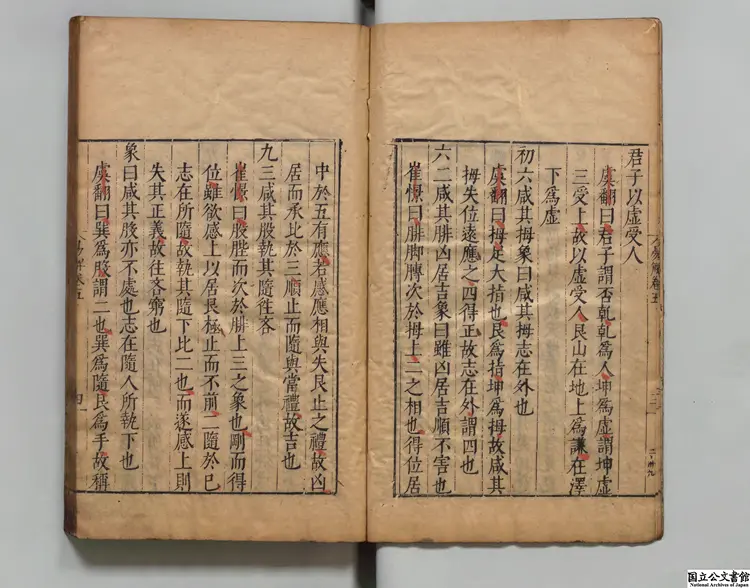 君子以虛受人
虞翻曰君子謂否乾乾爲人坤爲虛謂坤虛
三受上故以虛受人艮山在地上爲謙在澤
下爲虛
初六咸其拇象曰咸其拇志在外也
虞翻曰拇足大指也艮爲指坤爲拇故咸其
拇失位遠應之四得正故志在外謂四也
六二咸其腓凶居吉象曰雖凶居吉順不害也
崔憬曰腓脚膞次於拇上二之相也得位居
中於五有應若感應相與失艮止之禮故凶
居而承比於三順止而隨與當禮故吉也
九三咸其股執其隨往吝
崔憬曰股䏶而次於腓上三之象也剛而得
位雖欲感上以居艮極止而不前二隨於已
志在所隨故執其隨下比二也而遂感上則
失其正義故往吝窮也
象曰咸其股亦不處也志在隨人所執下也
虞翻曰巽爲股謂二也巽爲隨艮爲手故稱
易解卷五
国立公文書館
National Archives of Japan